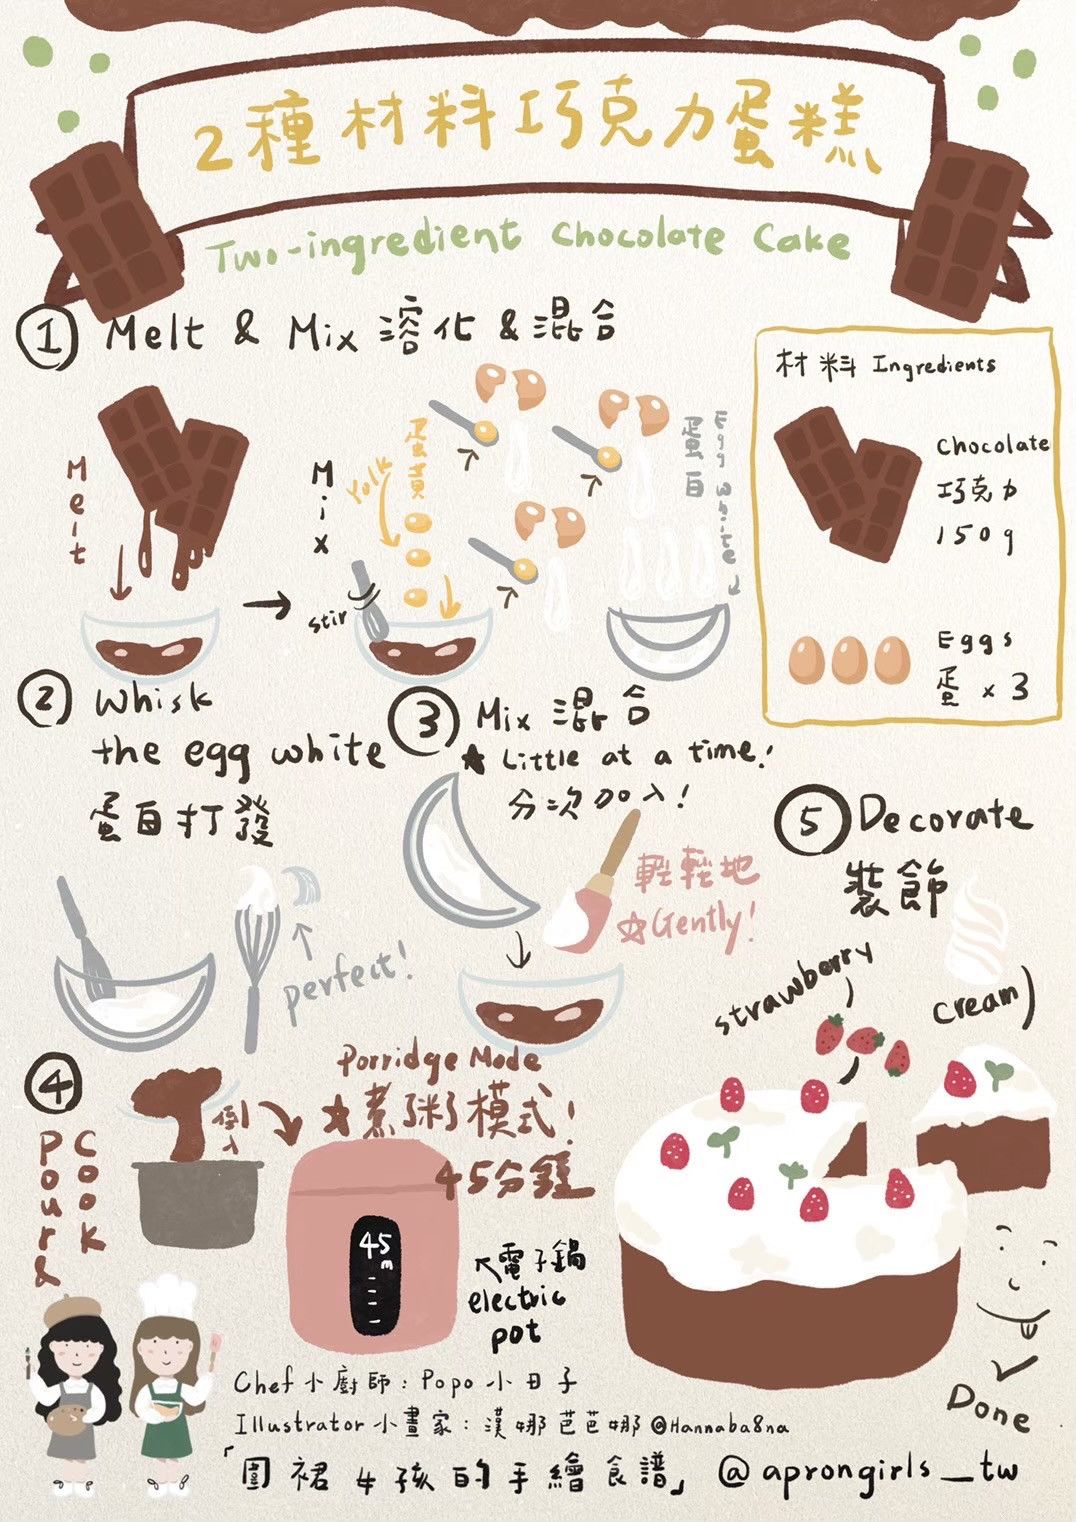 2種材料巧克力蛋糕
Two-ingredient Chocolate Cake
① Melt & Mix 溶化 & 混合
Melt
Mix
Yolk
蛋黃
stir
蛋白
Egg white
材料 Ingredients
Chocolate
巧克力
150g
Eggs
蛋 x 3
② Whisk
the egg white
蛋白打發
perfect!
③ Mix 混合
★ Little at a time!
分次加入!
輕輕地
☆Gently!
④ Pour & Cook
倒入
Porridge Mode
★煮粥模式!
45分鐘
45m
電子鍋
electric
pot
⑤ Decorate
裝飾
strawberry
cream
Done
Chef 小廚師：Popo 小日子
Illustrator 小畫家：漢娜芭芭娜 @Hannaba8na
「圍裙女孩的手繪食譜」 @aprongirls_tw